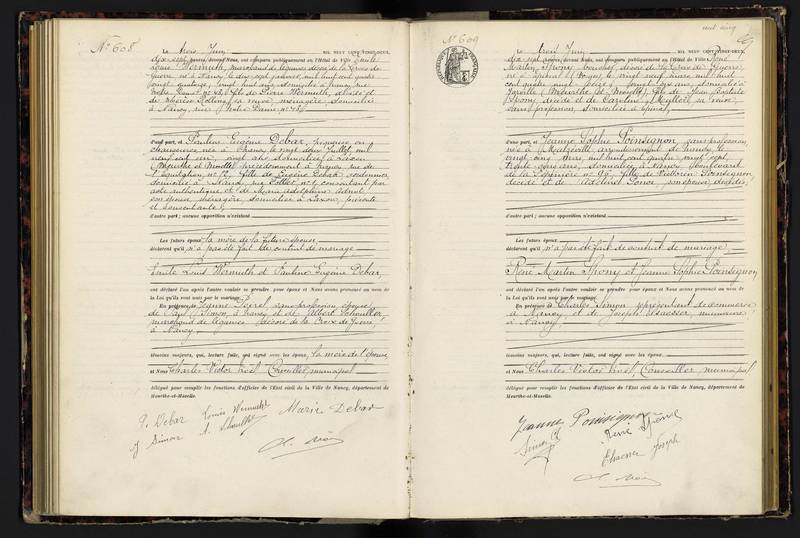 N° 608
Le trois Juin MIL NEUF CENT VINGT-DEUX,
dix sept heures, devant Nous, ont comparu publiquement en l'Hôtel de Ville : Emile
Louis Wermuth, marchand de légumes, décoré de la Croix de
Guerre né à Nancy le dix sept janvier mil huit cent quatre
vingt quatorze, vingt huit ans, domicilié à Nancy rue
Notre Dame n° 43, fils de Pierre Wermuth, décédé et
de Thérèse sa veuve, ménagère, domiciliée
à Nancy, rue Notre Dame, n° 43
d'une part, et Pauline Eugénie Debar, piqueuse en
chaussures, née à le vingt deux Juillet mil
neuf cent un, vingt ans, domiciliée à Laxou
(Meurthe et Moselle) précédemment à Nancy rue de
l'Equitation n° 12, fille de Eugène Debar, cordonnier,
domicilié à Nancy, rue n° 1, consentant par
acte authentique et de Marie
son épouse, ménagère, domiciliée à Laxou, présente
et consentante
d'autre part ; aucune opposition n'existant
Les futurs époux, la mère de la future épouse
déclarent qu'il n'a pas été fait de contrat de mariage
Emile Louis Wermuth et Pauline Eugénie Debar,
ont déclaré l'un après l'autre vouloir se prendre pour époux et Nous avons prononcé au nom de
la Loi qu'ils sont unis par le mariage.
En présence de Jeanne sans profession épouse
de Paul Simon, à Nancy et de Albert Schouller,
marchand de légumes, décoré de la Croix de Guerre,
à Nancy,
témoins majeurs, qui, lecture faite, ont signé avec les époux, la mère de l'épouse,
et Nous Charles Victor Noël Conseiller municipal
délégué pour remplir les fonctions d'officier de l'Etat civil de la Ville de Nancy, département de
Meurthe-et-Moselle.
P. Debar Louis Wermuth Marie Debar
J Simon A. Schouller
C. Noël
N° 609
Le trois Juin MIL NEUF CENT VINGT-DEUX,
dix sept heures, devant Nous, ont comparu publiquement en l'Hôtel de Ville : René
Martin boucher, décoré de la Croix de Guerre
né à Epinal (Vosges) le vingt neuf mil huit
cent quatre vingt ans, domicilié à
(Meurthe et Moselle), fils de Jean Baptiste
décédé et de Caroline sa veuve,
sans profession, domiciliée à Epinal,
d'une part, et Jeanne Sophie Poinsignon, sans profession,
née à arrondissement de Nancy le
vingt cinq Mars mil huit cent quatre vingt sept
trente cinq ans, domiciliée à Nancy, boulevard
de la Pépinière n° 95, fille de Poinsignon
décédé et de son épouse, décédée,
d'autre part ; aucune opposition n'existant
Les futurs époux
déclarent qu'il n'a pas été fait de contrat de mariage
René Martin et Jeanne Sophie Poinsignon
ont déclaré l'un après l'autre vouloir se prendre pour époux et Nous avons prononcé au nom de
la Loi qu'ils sont unis par le mariage.
En présence de Charles Simon représentant de commerce
à Nancy et de Joseph
à Nancy
témoins majeurs, qui, lecture faite, ont signé avec les époux
et Nous Charles Victor Noël, Conseiller municipal
délégué pour remplir les fonctions d'officier de l'Etat civil de la Ville de Nancy, département de
Meurthe-et-Moselle.
Jeanne Poinsignon
Simon Ch René
Joseph
C. Noël